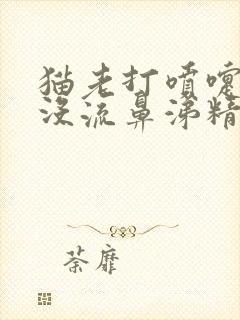 猫老打喷嚏
没流鼻涕精
荼靡